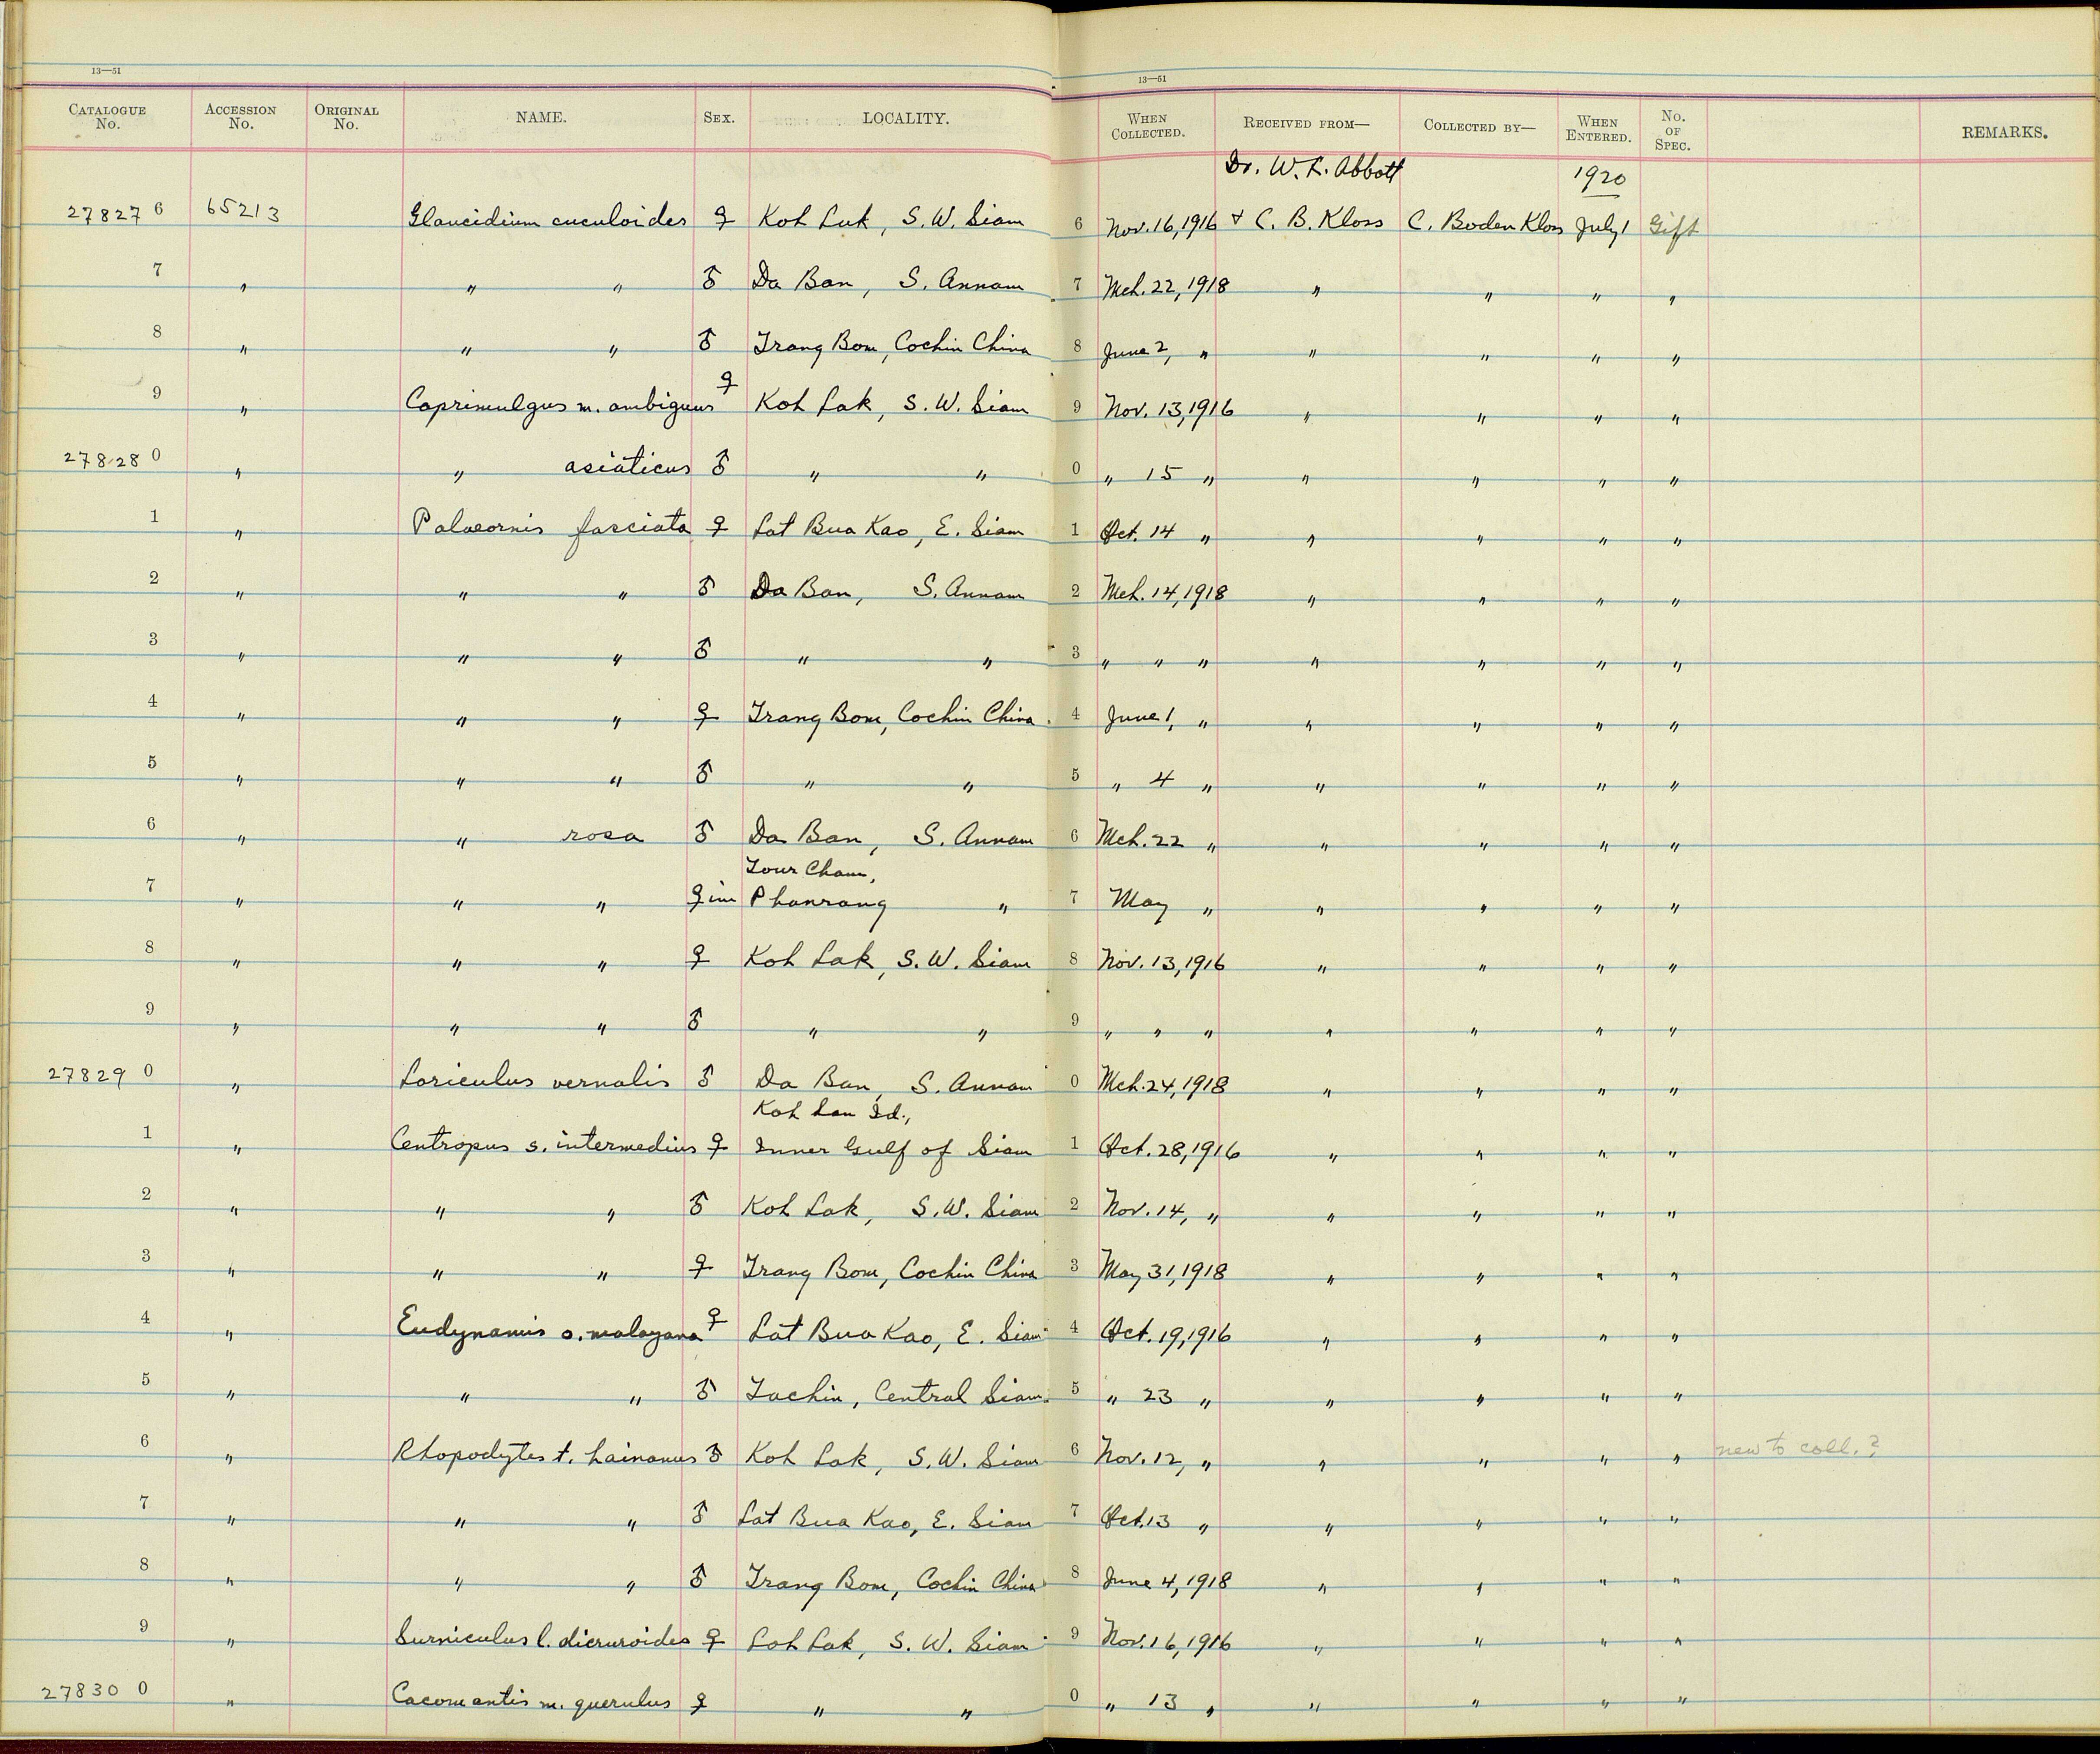 13—51
13—51
CATALOGUE No. ACCESSION No. ORIGINAL No. NAME. SEX. LOCALITY. WHEN COLLECTED. RECEIVED FROM— COLLECTED BY— WHEN ENTERED. No. OF SPEC. REMARKS.
Dr. W. L. Abbott 1920
27827 6 65213 Glaucidium cuculoides ♀ Koh Luk, S. W. Siam 6 Nov. 16, 1916 + C. B. Kloss C. Boden Kloss July 1 Gift
7 " " " ♂ Da Ban, S. Annam 7 Mch. 22, 1918 " " " "
8 " " " ♂ Trang Bom, Cochin China 8 June 2, " " " " "
9 " Caprimulgus m. ambiguus ♀ Koh Lak, S. W. Siam 9 Nov. 13, 1916 " " " "
27828 0 " " asiaticus ♂ " " 0 " 15 " " " " "
1 " Palaeornis fasciata ♀ Lat Bua Kao, E. Siam 1 Oct. 14 " " " " "
2 " " " ♂ Da Ban, S. Annam 2 Mch. 14, 1918 " " " "
3 " " " ♂ " " 3 " " " " " " "
4 " " " ♀ Trang Bom, Cochin China. 4 June 1, " " " " "
5 " " " ♂ " " 5 " 4 " " " " "
6 " " rosa ♂ Da Ban, S. Annam 6 Mch. 22 " " " " "
Tour Cham,
7 " " " ♀ im Phanrang " 7 May " " " " "
8 " " " ♀ Koh Lak, S. W. Siam 8 Nov. 13, 1916 " " " "
9 " " " ♂ " " 9 " " " " " " "
27829 0 " Loriculus vernalis ♂ Da Ban, S. Annam 0 Mch. 24, 1918 " " " "
Koh Lan Id.,
1 " Centropus s. intermedius ♀ Inner Gulf of Siam 1 Oct. 28, 1916 " " " "
2 " " " ♂ Koh Lak, S. W. Siam 2 Nov. 14, " " " " "
3 " " " ♀ Trang Bom, Cochin China 3 May 31, 1918 " " " "
4 " Eudynamis o. malayana ♀ Lat Bua Kao, E. Siam 4 Oct. 19, 1916 " " " "
5 " " " ♂ Tachin, Central Siam. 5 " 23 " " " " "
6 " Rhopodytes t. hainanus ♂ Koh Lak, S. W. Siam 6 Nov. 12, " " " " " new to coll.?
7 " " " ♂ Lat Bua Kao, E. Siam 7 Oct. 13 " " " " "
8 " " " ♂ Trang Bom, Cochin China 8 June 4, 1918 " " " "
9 " Surniculus l. dicruroides ♀ Loh Lak, S. W. Siam 9 Nov. 16, 1916 " " " "
27830 0 " Cacomantis m. querulus ♀ " " 0 " 13 " " " " "